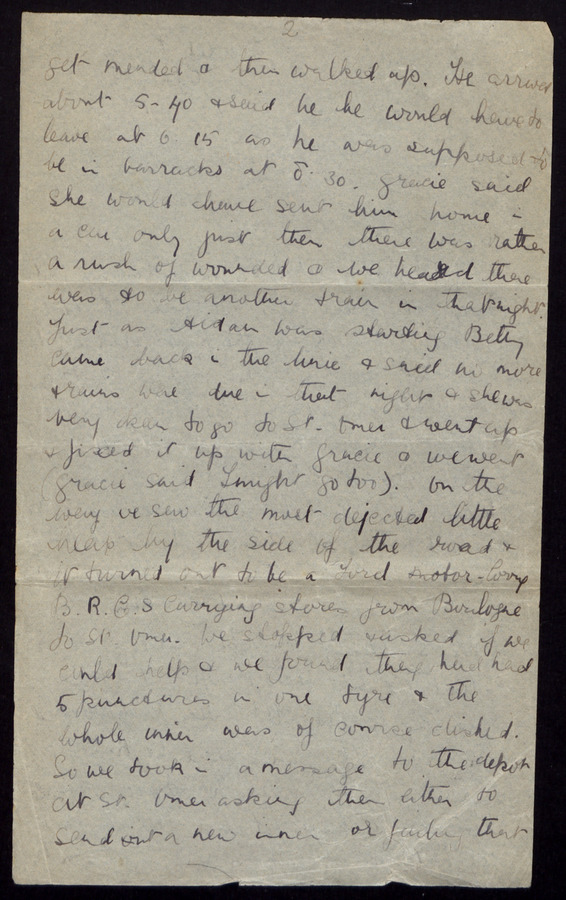 2
get mended & then walked up. He arrived
about 5-40 & said he he would have to
leave at 6 15 as he was supposed to
be in barracks at 8.30. Gracie said
she would have sent him home in
a car only just then there was rather
a rush of wounded & we heard there
was to be another train in that night.
Just as Aidan was starting Betty
came back in the lorrie & said no more
trains were due in that night & she was
very keen to go to St. Omer & went up
& fixed it up with Gracie & we went
(Gracie said I might go too). On the
way we saw the most dejected little
heap by the side of the road &
it turned out to be a Ford motor-lorry
B.R.C.S carrying stores from Boulogne
to St. Omer. We stopped & asked if we
could help & we found they had had
5 punctures in one tyre & the
whole inner was of course dished.
So we took in a message to the depot
at St. Omer asking them either to
send out a new inner or failing that